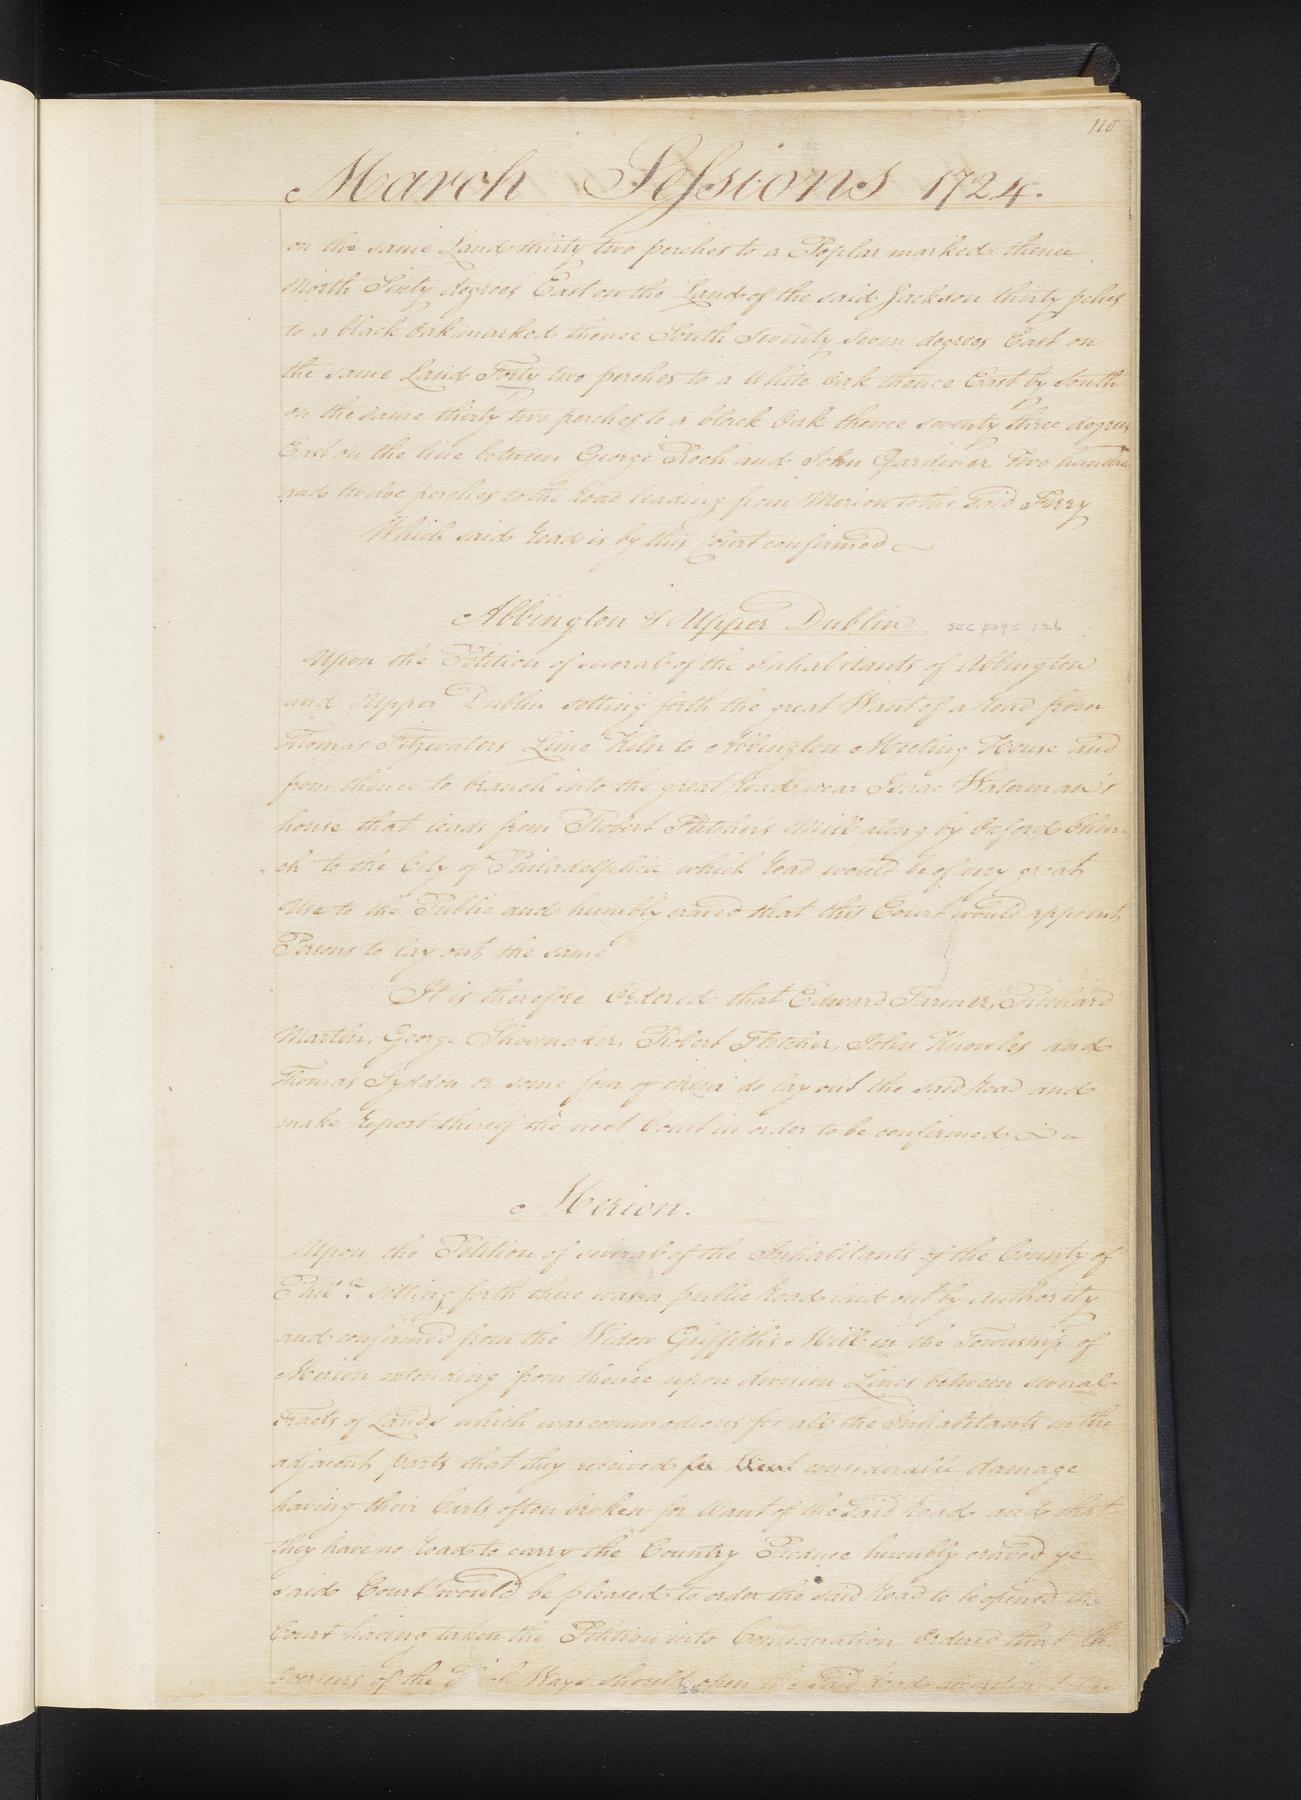 110
March Sessions 1724.
on the same Land thirty two perches to a Poplar marked thence
North Sixty degrees East on the Land of the said Jackson thirty pches
to a black Oak marked thence South Seventy Seven degrees East on
the same Land Forty two perches to a White Oak thence East by South
on the same thirty two perches to a black Oak thence seventy three degrees
East on the line between George Roch and John Gardiner Two hundre
and twelve perches to the Road leading from Merion to the said Ferry
Which said Road is by this Court confirmed
Abbington & Upper Dublin see page 126
Upon the Petition of several of the Inhabitants of Abbington
and Upper Dublin setting forth the great Want of a Road from
Thomas Fitzwaters Lime Kiln to Abbington Meeting House and
from thence to branch into the great Road near Isaac Waterman's
house that leads from Robert Fletcher's Mill along by Oxford Chur
ch to the City of Philadelphia which Road would be of very great
Use to the Public and humbly craved that this Court would appoint
Persons to lay out the same
It is therefore Ordered that Edward Farmer, Richard
Martin, George Shoemaker, Robert Fletcher, John Knowles and
Thomas Syddon or some four of them do lay out the said Road and
make Report thereof the next Court in order to be confirmed
Merion.
Upon the Petition of several of the Inhabitants of the County of
Phil.a setting forth there was a public Road laid out by Authority
and confirmed from the Widow Griffith's Mill in the Township of
Merion extending from thence upon division Lines between several
Tracts of Lands which was commodious for all the Inhabitants in the
adjacent parts that they received considerable damage
having their Carts often broken for Want of the said Road and that
they have no Road to carry the Country Produce humbly craved ye
said Court would be pleased to order the said Road to be opened the
Court having taken the Petition into Consideration Ordered that th
Overseers of the Ways should open the said Road